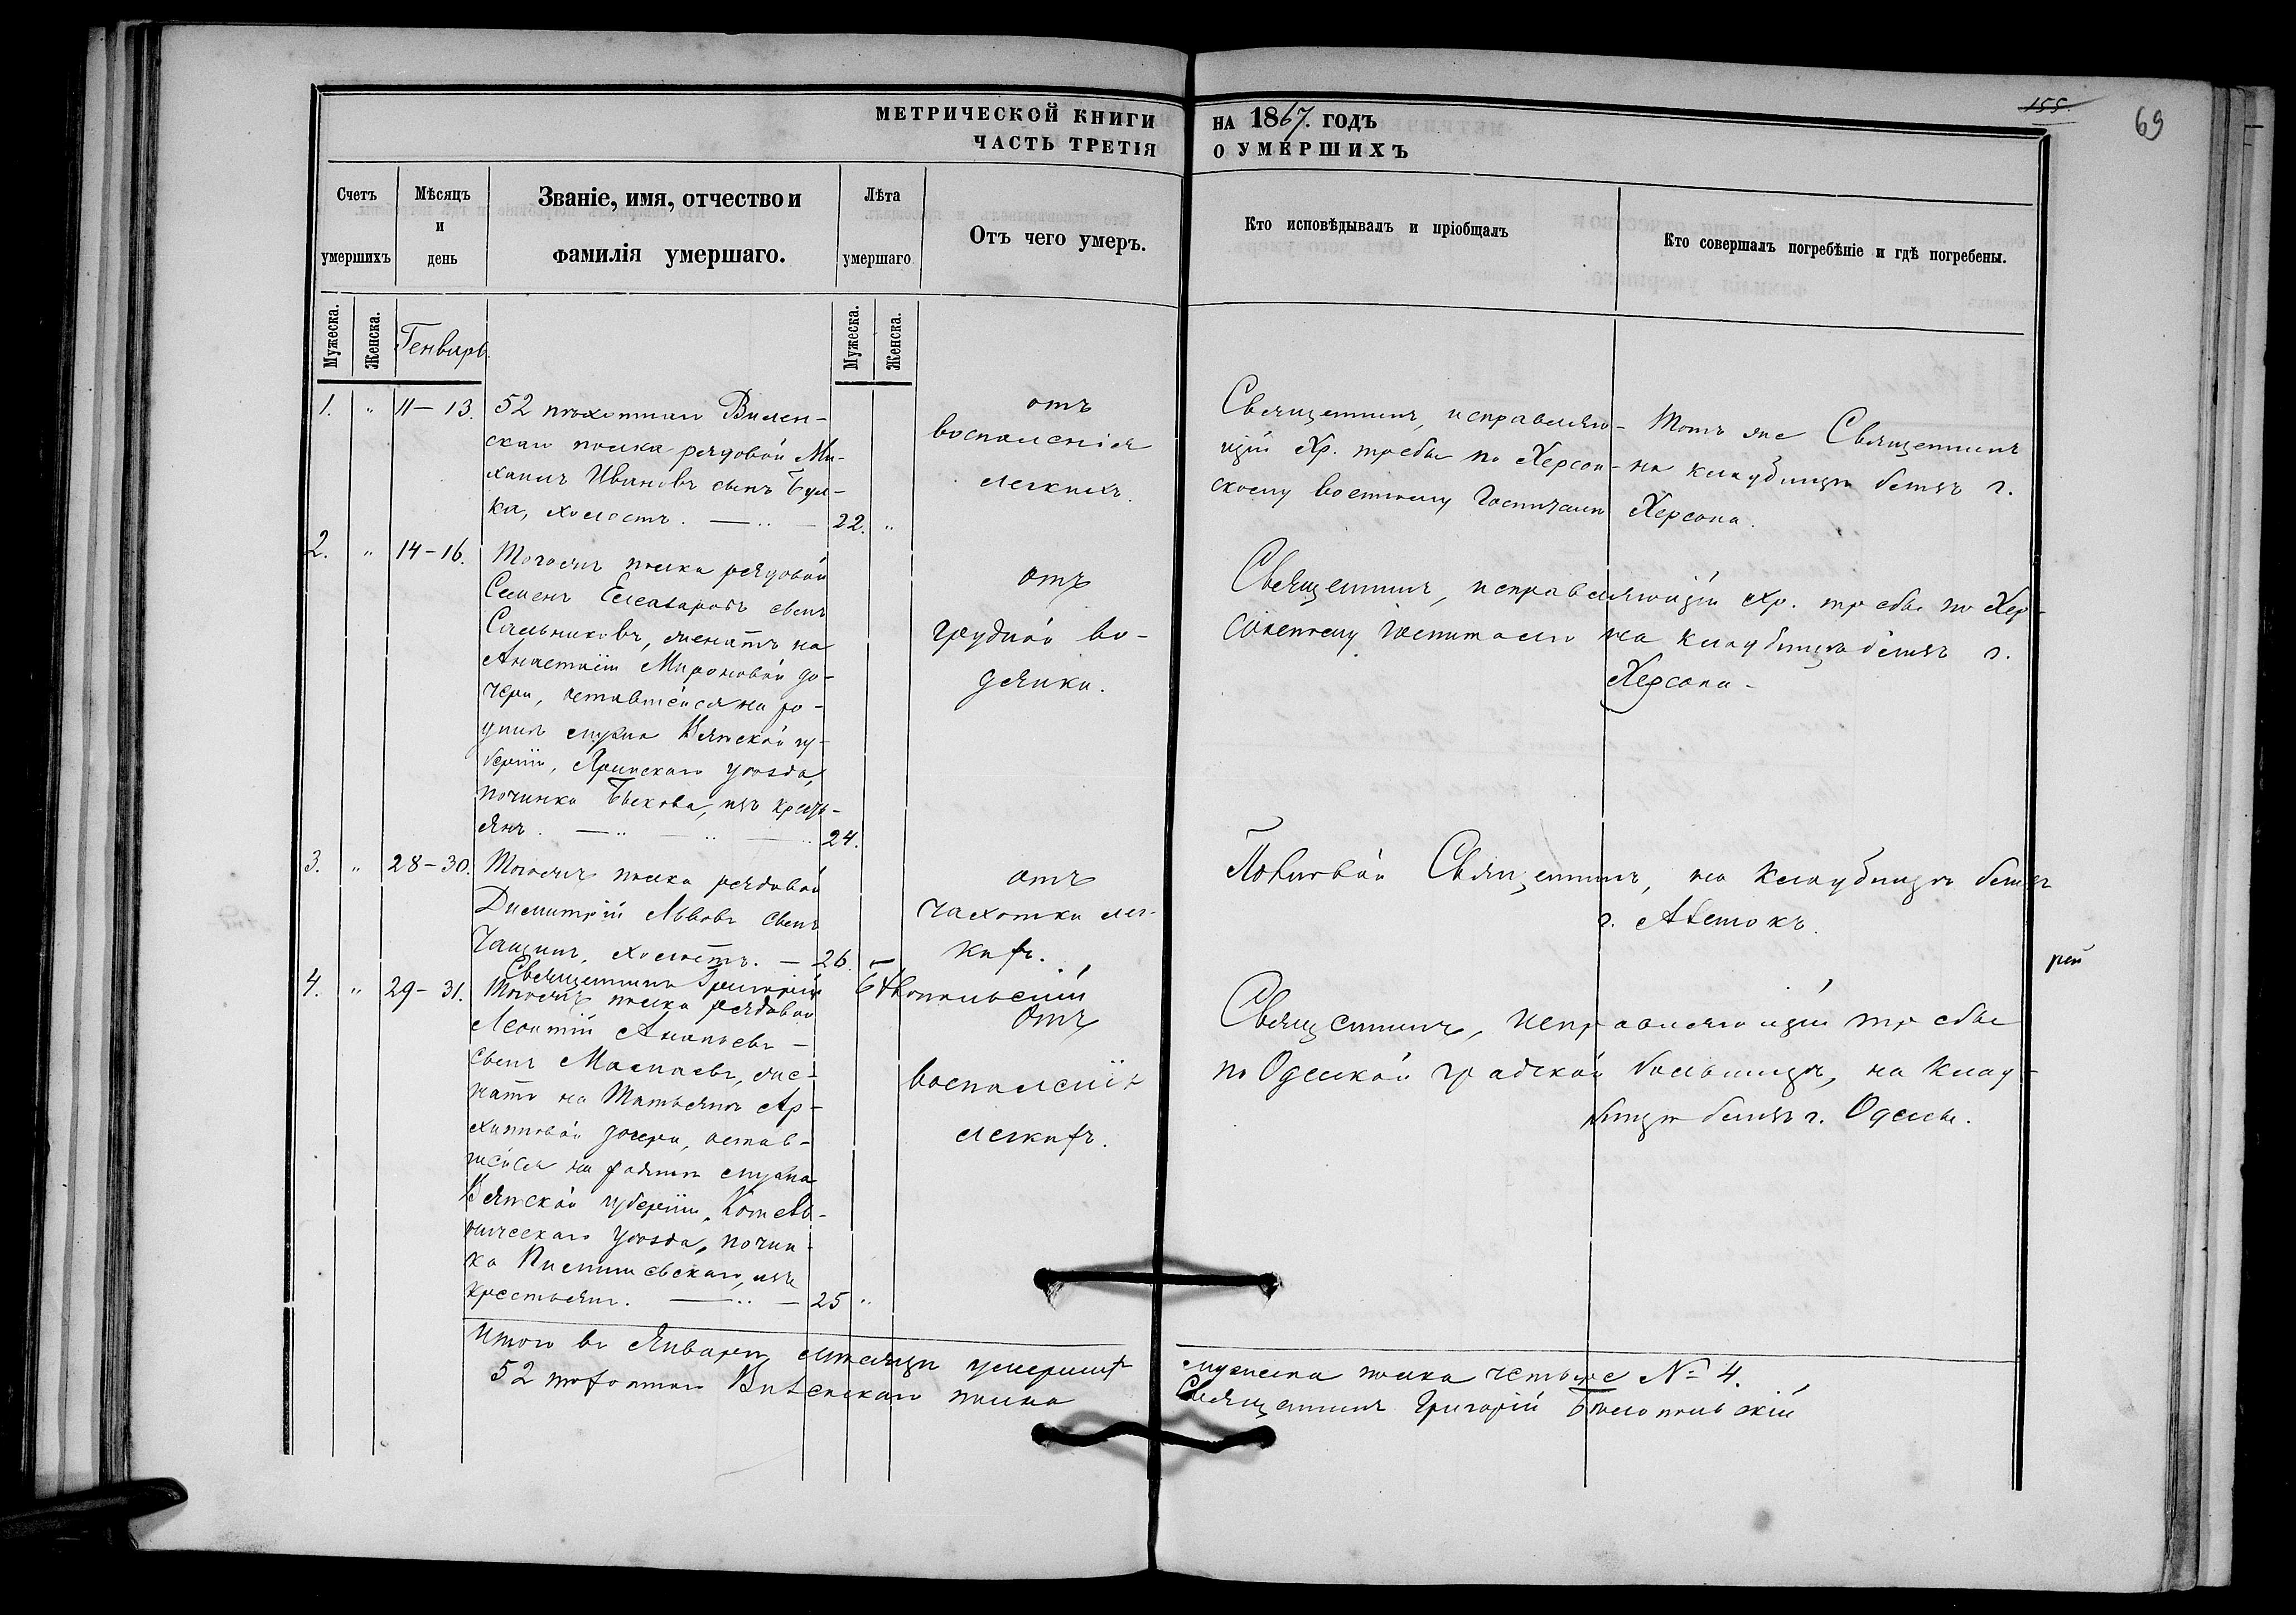 155.
69
МЕТРИЧЕСКОЙ КНИГИ НА 1867. ГОДЪ
ЧАСТЬ ТРЕТІЯ О УМЕРШИХЪ
Счетъ умершихъ
Мѣсяцъ и день
Званіе, имя, отчество и фамилія умершаго.
Лѣта умершаго
Отъ чего умеръ.
Кто исповѣдывалъ и пріобщалъ
Кто совершалъ погребѣніе и гдѣ погребены.
Мужеска.
Женска.
Генварь.
Мужеска.
Женска.
1. " 11-13.
52 пѣхотнаго Вилен-
скаго полка рядовой Ми-
хаилъ Ивановъ сынъ Бул-
ка, холостъ. 22. "
отъ
воспаленія
легкихъ.
Священникъ, исправляю-
щій Хр. требы по Херсон-
скому военному Госпиталю
Тотъ же Священникъ
на кладбищѣ близъ г.
Херсона.
2. " 14-16.
Тогожъ полка рядовой
Семенъ Елеазаровъ сынъ
Сальниковъ, женатъ на
Анастасіи Мироновой до-
чери, оставшейся на ро-
динѣ мужа Вятской гу-
берніи, Яранскаго уѣзда,
починка Быкова, изъ кресть-
янъ. 24.
отъ
грудной во-
дянки.
Священникъ, исправляющій хр. требы по Хер-
сонскому Госпиталю на кладбищѣ близъ г.
Херсона
3. " 28-30.
Тогожъ полка рядовой
Димитрій Львовъ сынъ
Чащинъ, холостъ. 26.
отъ
чахотки лег-
кихъ.
Полковой Священникъ, на кладбищѣ близъ
г. Алешокъ.
Священникъ Григорій Бѣлопольскій
4. " 29-31.
Тогожъ полка рядовой
Леонтій Ананьевъ
сынъ женатъ на Татьянѣ Ар-
хиповой дочери, остав-
шейся на родинѣ мужа
Вятской губерніи, Котель-
ническаго уѣзда, почин-
ка изъ
крестьянъ. 25 "
Отъ
воспаленія
легкихъ.
Священникъ, исправляющій требы
по Одесской градской больницѣ, на клад-
бищѣ близъ г. Одессы.
Итого въ Январѣ мѣсяцѣ умершихъ мужеска пола четыре № 4.
52 пѣхотнаго Виленскаго полка Священникъ Григорій Бѣлопольскій